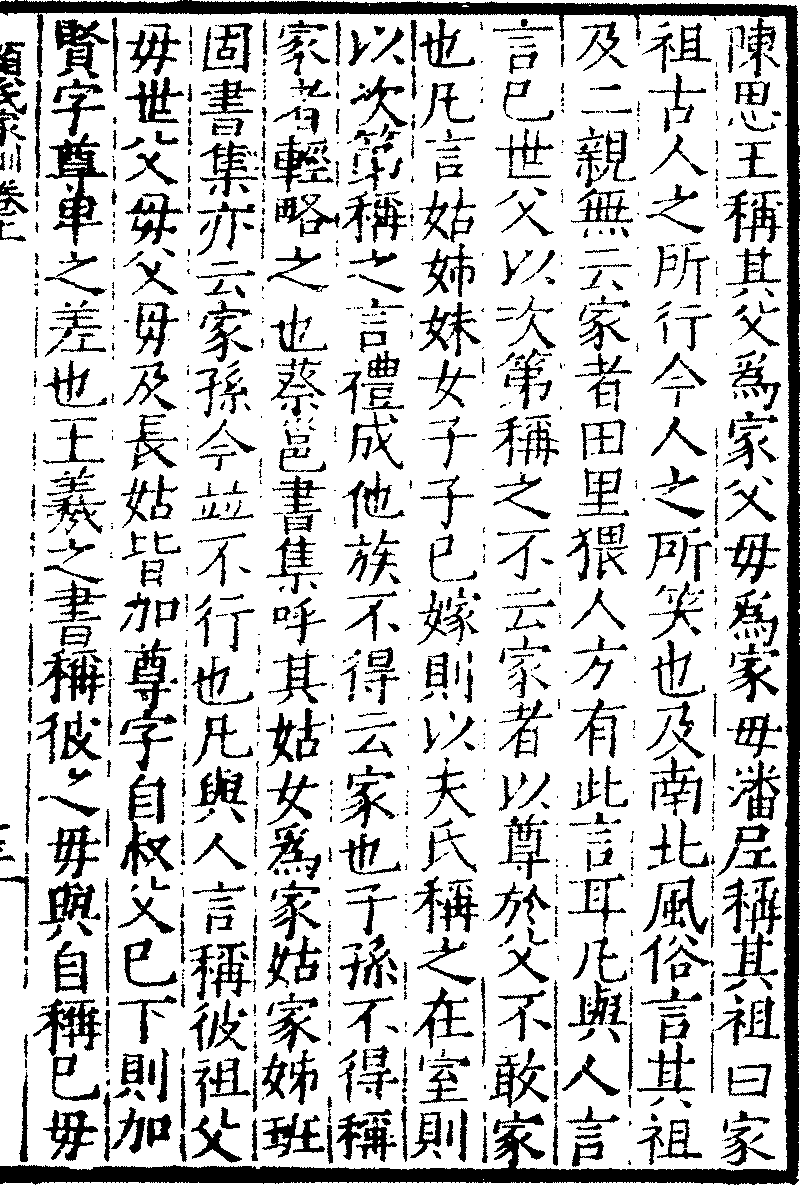 陳思王稱其父爲家父母爲家母潘尼稱其祖曰家
祖古人之所行今人之所笑也及南北風俗言其祖
及二親無云家者田里猥人方有此言耳凡與人言
言已世父以次第稱之不云家者以尊於父不敢家
也凡言姑姊妹女子子已嫁則以夫氏稱之在室則
以次第稱之言禮成他族不得云家也子孫不得稱
家者輕略之也蔡邕書集呼其姑女爲家姑家姊班
固書集亦云家孫今並不行也凡與人言稱彼祖父
母世父母父母及長姑皆加尊字自叔父已下則加
賢字尊卑之差也王羲之書稱彼之母與自稱已母
顏氏家訓卷上